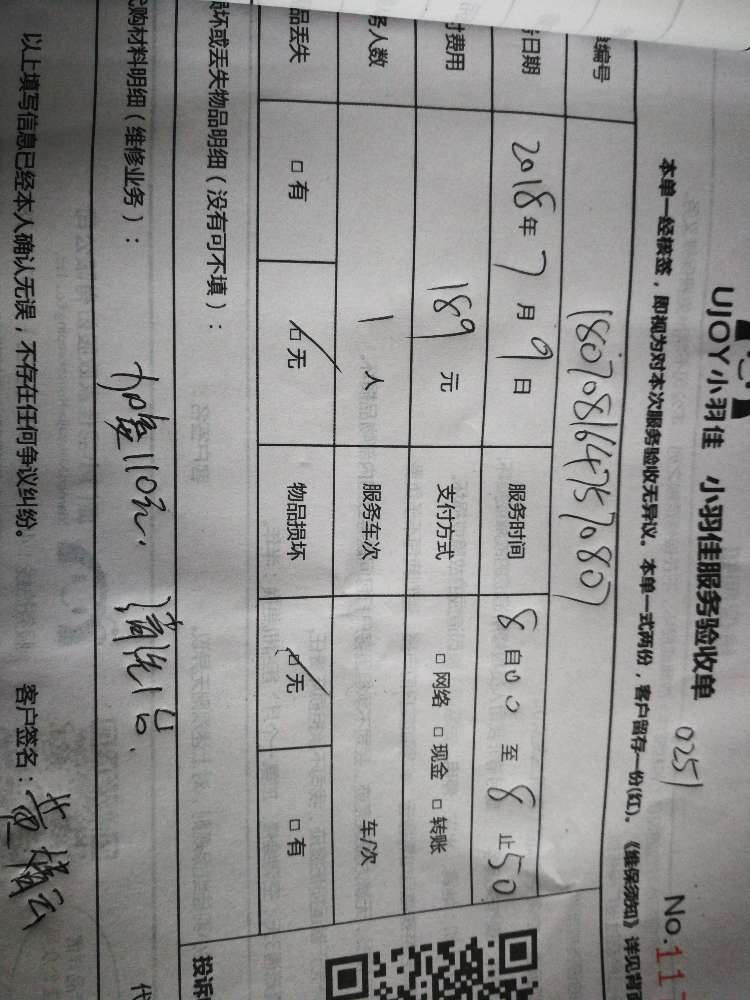 UJOY小羽佳 小羽佳服务验收单 0251 No.11
本单一经核签，即视为对本次服务验收无异议。本单一式两份，客户留存一份(红)。《维保须知》详见背面
编号 180708164757087
日期 2018年7月9日 服务时间 8自00至8止50
付费用 189元 支付方式 □网络 □现金 □转账
务人数 1人 服务车次 车/次
品丢失 □有 □无 物品损坏 □无 □有
损坏或丢失物品明细（没有可不填）：
购材料明细（维修业务）： 加 110元. 清洗1台.
投诉
以上填写信息已经本人确认无误，不存在任何争议纠纷。 客户签名：黄
代